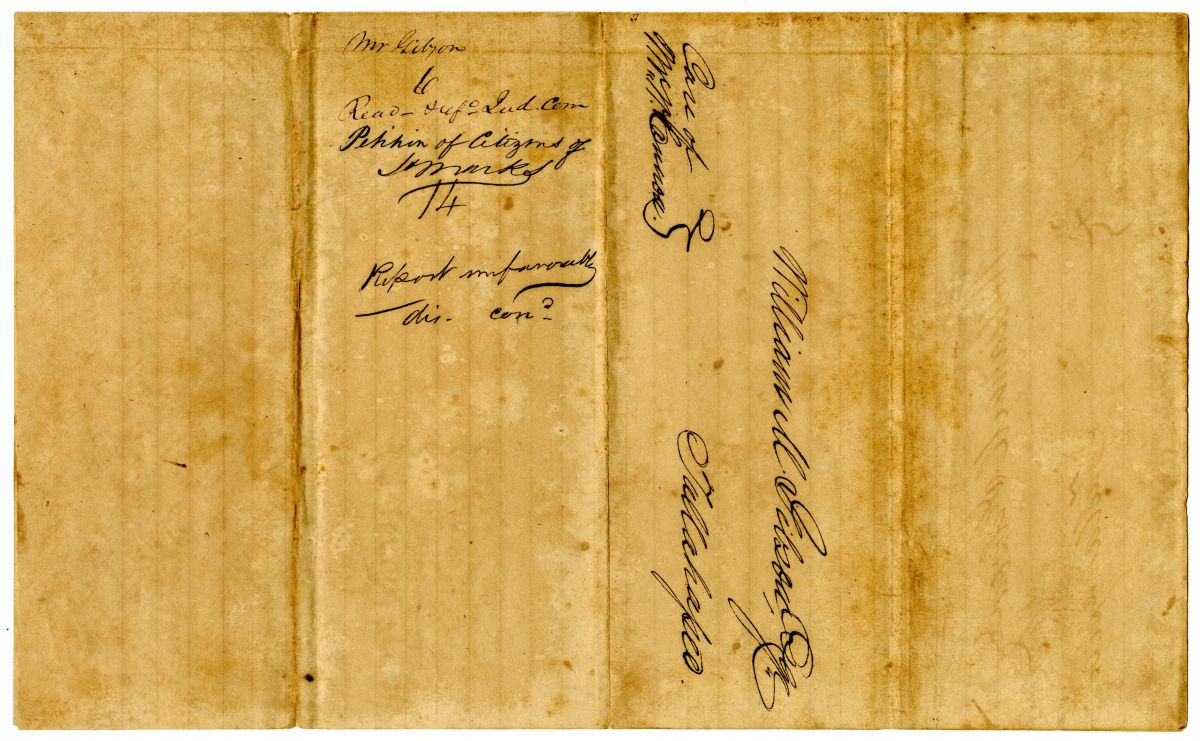 Mr Gibson
6
Read - & refd Jud. Com
Petition of Citizens of
St Marks
14
Report unfavorable
dis. cond
Care of
William M. Gibson, Esqr
Tallahassee.